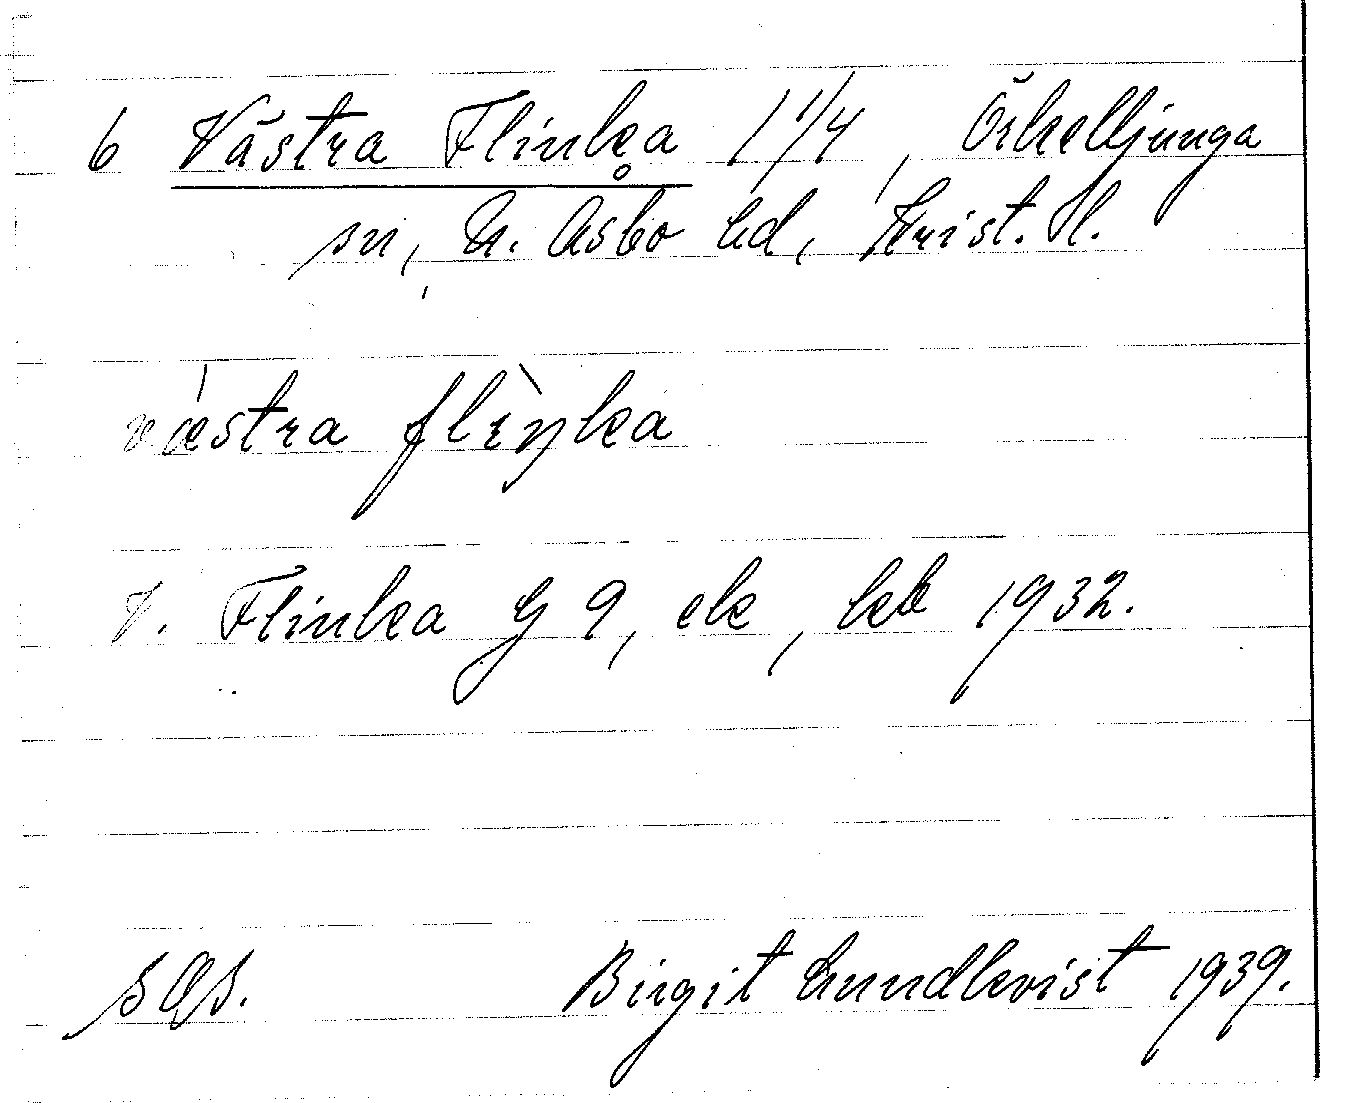 6 Västra Flinka 1 1/4, Örkelljunga
sn, N. Åsbo hd, Krist. l.
västra flìŋka
V. Flinka G 9, ek, kbl 1932.
Birgit Lundkvist 1939.